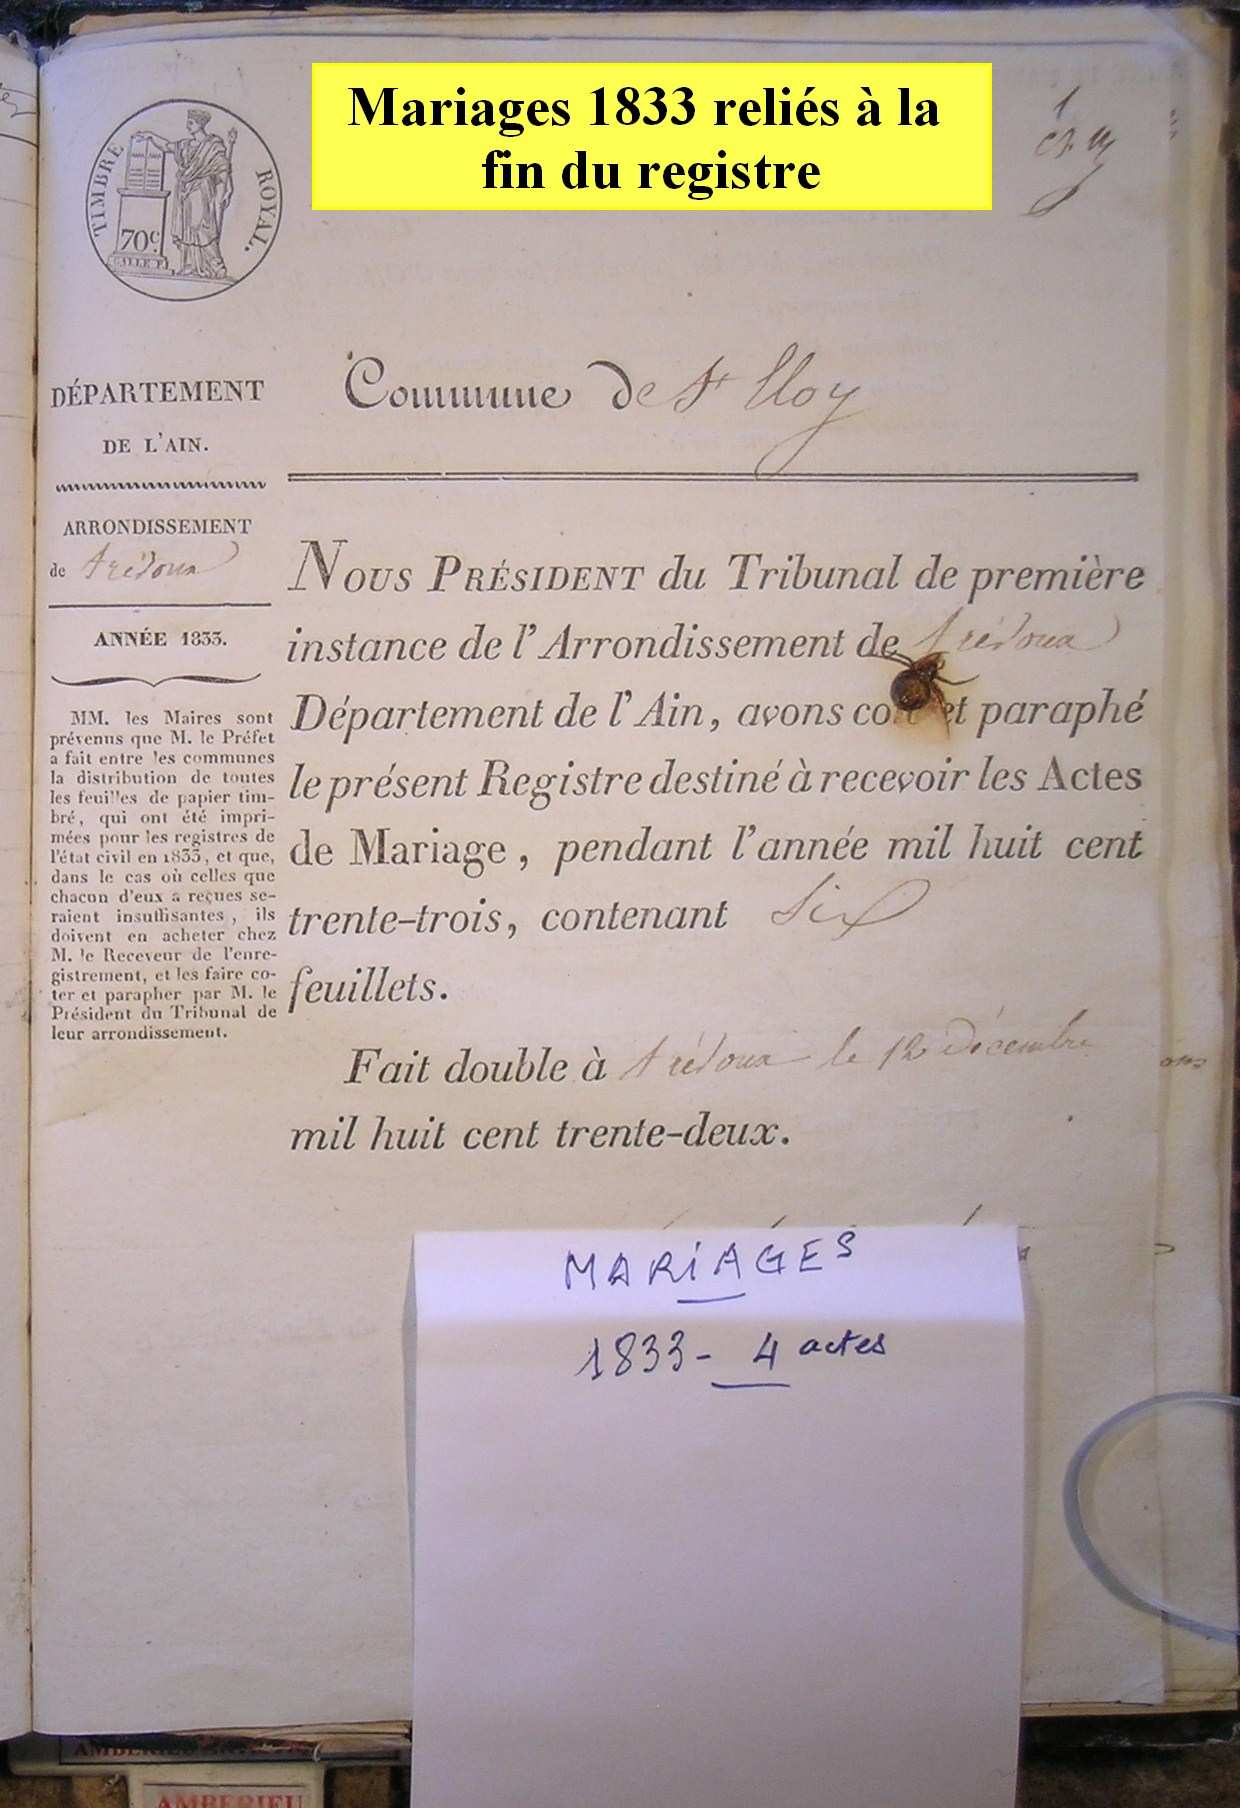 Mariages 1833 reliés à la
fin du registre
1
TIMBRE ROYAL.
70c.
DÉPARTEMENT
DE L'AIN.
ARRONDISSEMENT
de trévoux
ANNÉE 1833.
MM. les Maires sont
prévenus que M. le Préfet
a fait entre les communes
la distribution de toutes
les feuilles de papier tim-
bré, qui ont été impri-
mées pour les registres de
l'état civil en 1833, et que,
dans le cas où celles que
chacun d'eux a reçues se-
raient insuffisantes, ils
doivent en acheter chez
M. le Receveur de l'enre-
gistrement, et les faire co-
ter et parapher par M. le
Président du Tribunal de
leur arrondissement.
Commune de St Eloy
NOUS PRÉSIDENT du Tribunal de première
instance de l'Arrondissement de trévoux
Département de l'Ain, avons et paraphé
le présent Registre destiné à recevoir les Actes
de Mariage, pendant l'année mil huit cent
trente-trois, contenant Six
feuillets.
Fait double à trévoux le 12 décembre
mil huit cent trente-deux.
MARIAGES
1833- 4 actes
AMBERIEU